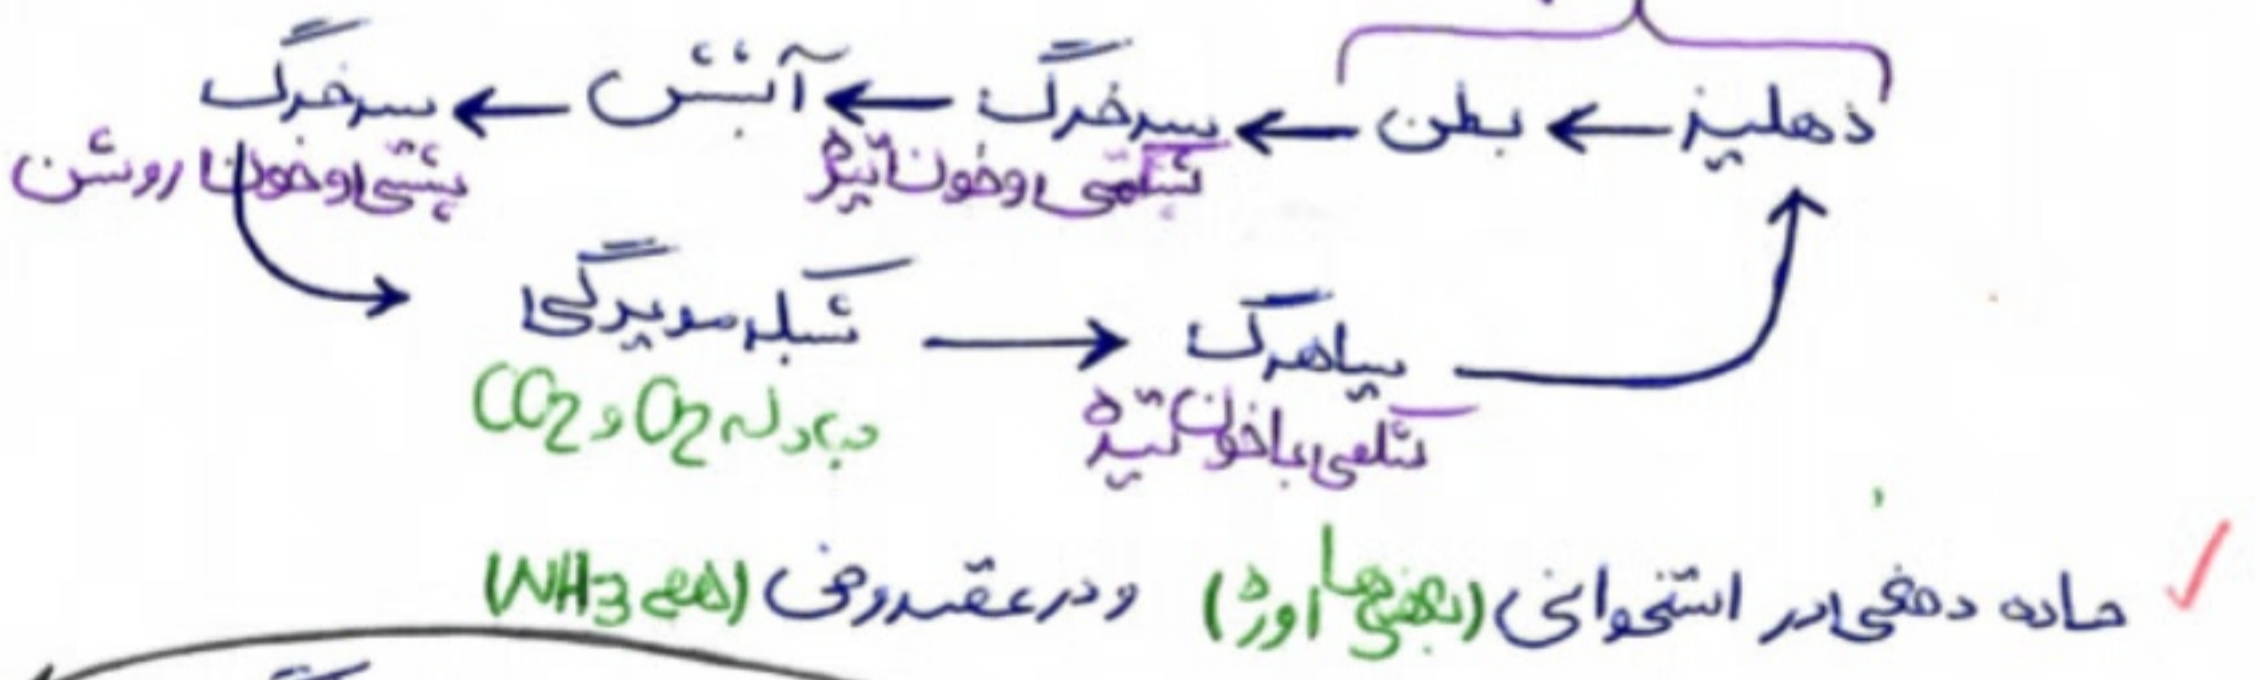 دهلیز ← بطن ← سرخرگ ← آبشش ← سرخرگ
شکمی و خون تیره
پشتی و خون روشن
شبکه مویرگی → سیاهرگ
مبادله O2 و CO2
شکمی با خون تیره
ماده دفعی در استخوانی (بعضی‌ها اوره) و در غضروفی (همه NH3)